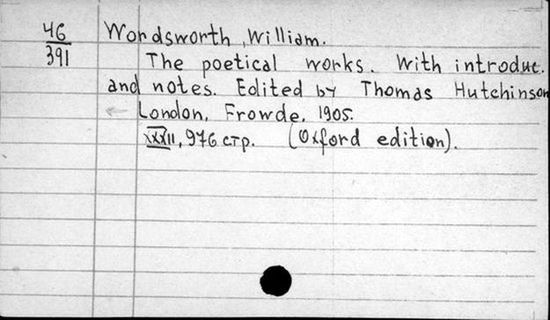 46
391
Wordsworth, William.
The poetical works. With introduc.
and notes. Edited by Thomas Hutchinson
London, Frowde, 1905.
XXXII, 976 стр. (Oxford edition).